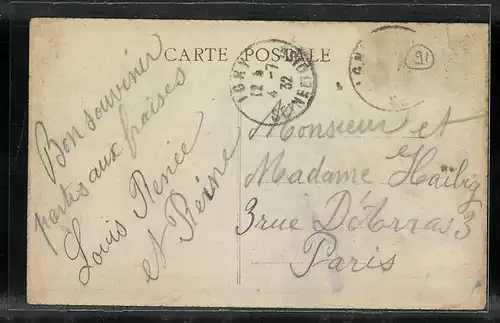 CARTE POSTALE
IGNY
12 4
4-7
32
IGN
91
Bon souvenir
partis aux fraises
Louis Renée
et Reine
Monsieur et
Madame Haïbig
3 rue D'Arras 3
Paris